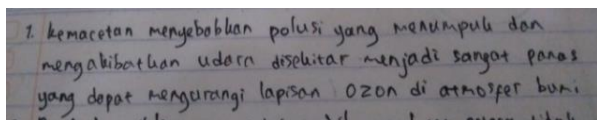 1. kemacetan menyebabkan polusi yang menumpuk dan
mengakibatkan udara disekitar menjadi sangat panas
yang dapat mengurangi lapisan ozon di atmosfer bumi